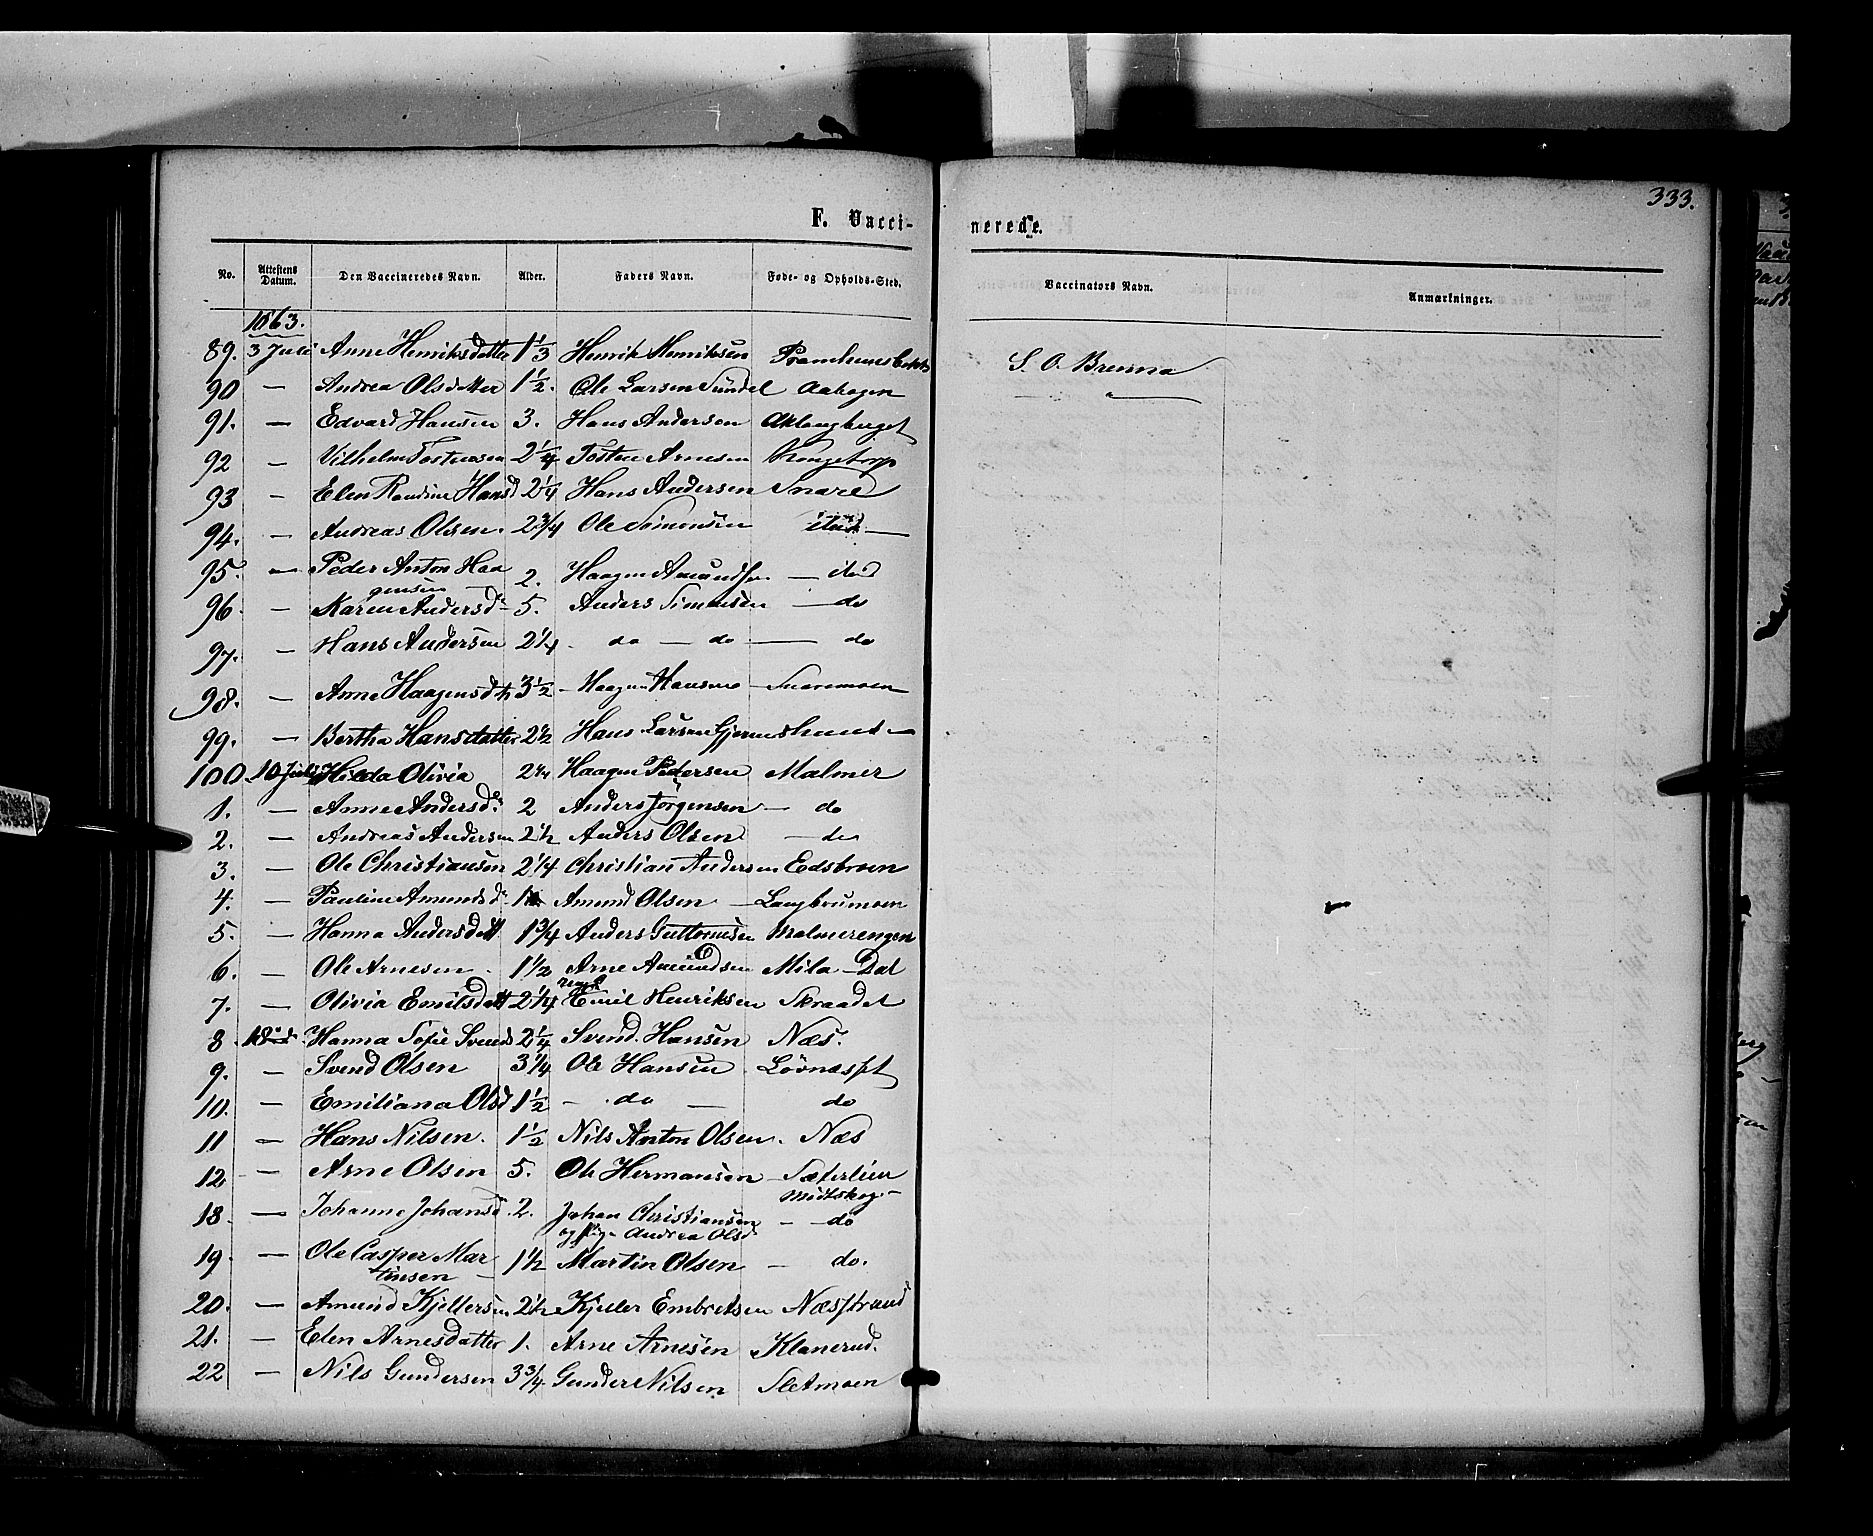 333.
F. Vacci-
nerede.
No. Attestens Datum. Den Vaccineredes Navn. Alder. Faders Navn. Føde- og Opholds-Sted. Vaccinators Navn. Anmærkninger.
1863.
89. 3 Juli Anne Henriksdatter 1 1/3 Henrik Henriksen S. O. Brenna
90 — Andrea Olsdatter 1 1/2. Ole Larsen Aahagen
91. — Edvard Hansen 3. Hans Andersen
92 — Vilhelm Tostensen 2 1/4 Tosten Arnesen Kongetorp
93 — Elen Randine Hansd 2 1/4 Hans Andersen Snare
94. — Andreas Olsen. 2 3/4 Ole Simonsen —
95. — Peder Anton Haa
gensen 2. Haagen Amundsen —
96. — Karen Andersd 5. Anders Simonsen — do
97. — Hans Andersen 2 1/4 do — do — do
98. — Anne Haagensdtr 3 1/2 Haagen Hansen Snaremoen
99. — Bertha Hansdatter 2 1/2 Hans Larsen Gjermshuus —
100 10 Juli Hilda Olivia 2 1/4 Haagen Pedersen Malmer
1. — Anne Andersd. 2 Anders Jørgensen — do
2. — Andreas Andersen 2 1/2 Anders Olsen — do
3. — Ole Christiansen 2 1/4 Christian Andersen Edsbroen
4. — Pauline Amundsd. 1 Amund Olsen — Langbrumoen
5. — Hanna Andersdatt 1 3/4 Anders Guttormsen Malmerengen
6. — Ole Arnesen 1 1/2 Arne Amundsen Mila-Dal
7. — Olivia Emilsdatt 2 1/4 Emil Henriksen Skraadet
8 Hanna Sofie Svends 2 1/4 Svend Hansen Næs.
9. — Svend Olsen 3 1/4 Ole Hansen Lövnæspt
10. — Emiliana Olsd 1 1/2 — do — do
11 — Hans Nilsen. 1 1/2 Nils Anton Olsen. Næs
12 — Arne Olsen 5. Ole Hermansen Sæterlien
Midtskog —
18. — Johanne Johansd. 2. Johan Christiansen — do
og pige Andrea Olsd
19. — Ole Casper Mar
tinsen — 1 1/2 Martin Olsen — do.
20. — Amund Kjellersen 2 1/2 Kjeller Embretsen Næsstrand
21. — Elen Arnesdatter 1. Arne Arnesen Klanerud.
22 — Nils Gundersen 3 3/4 Gunder Nilsen Sletmoen